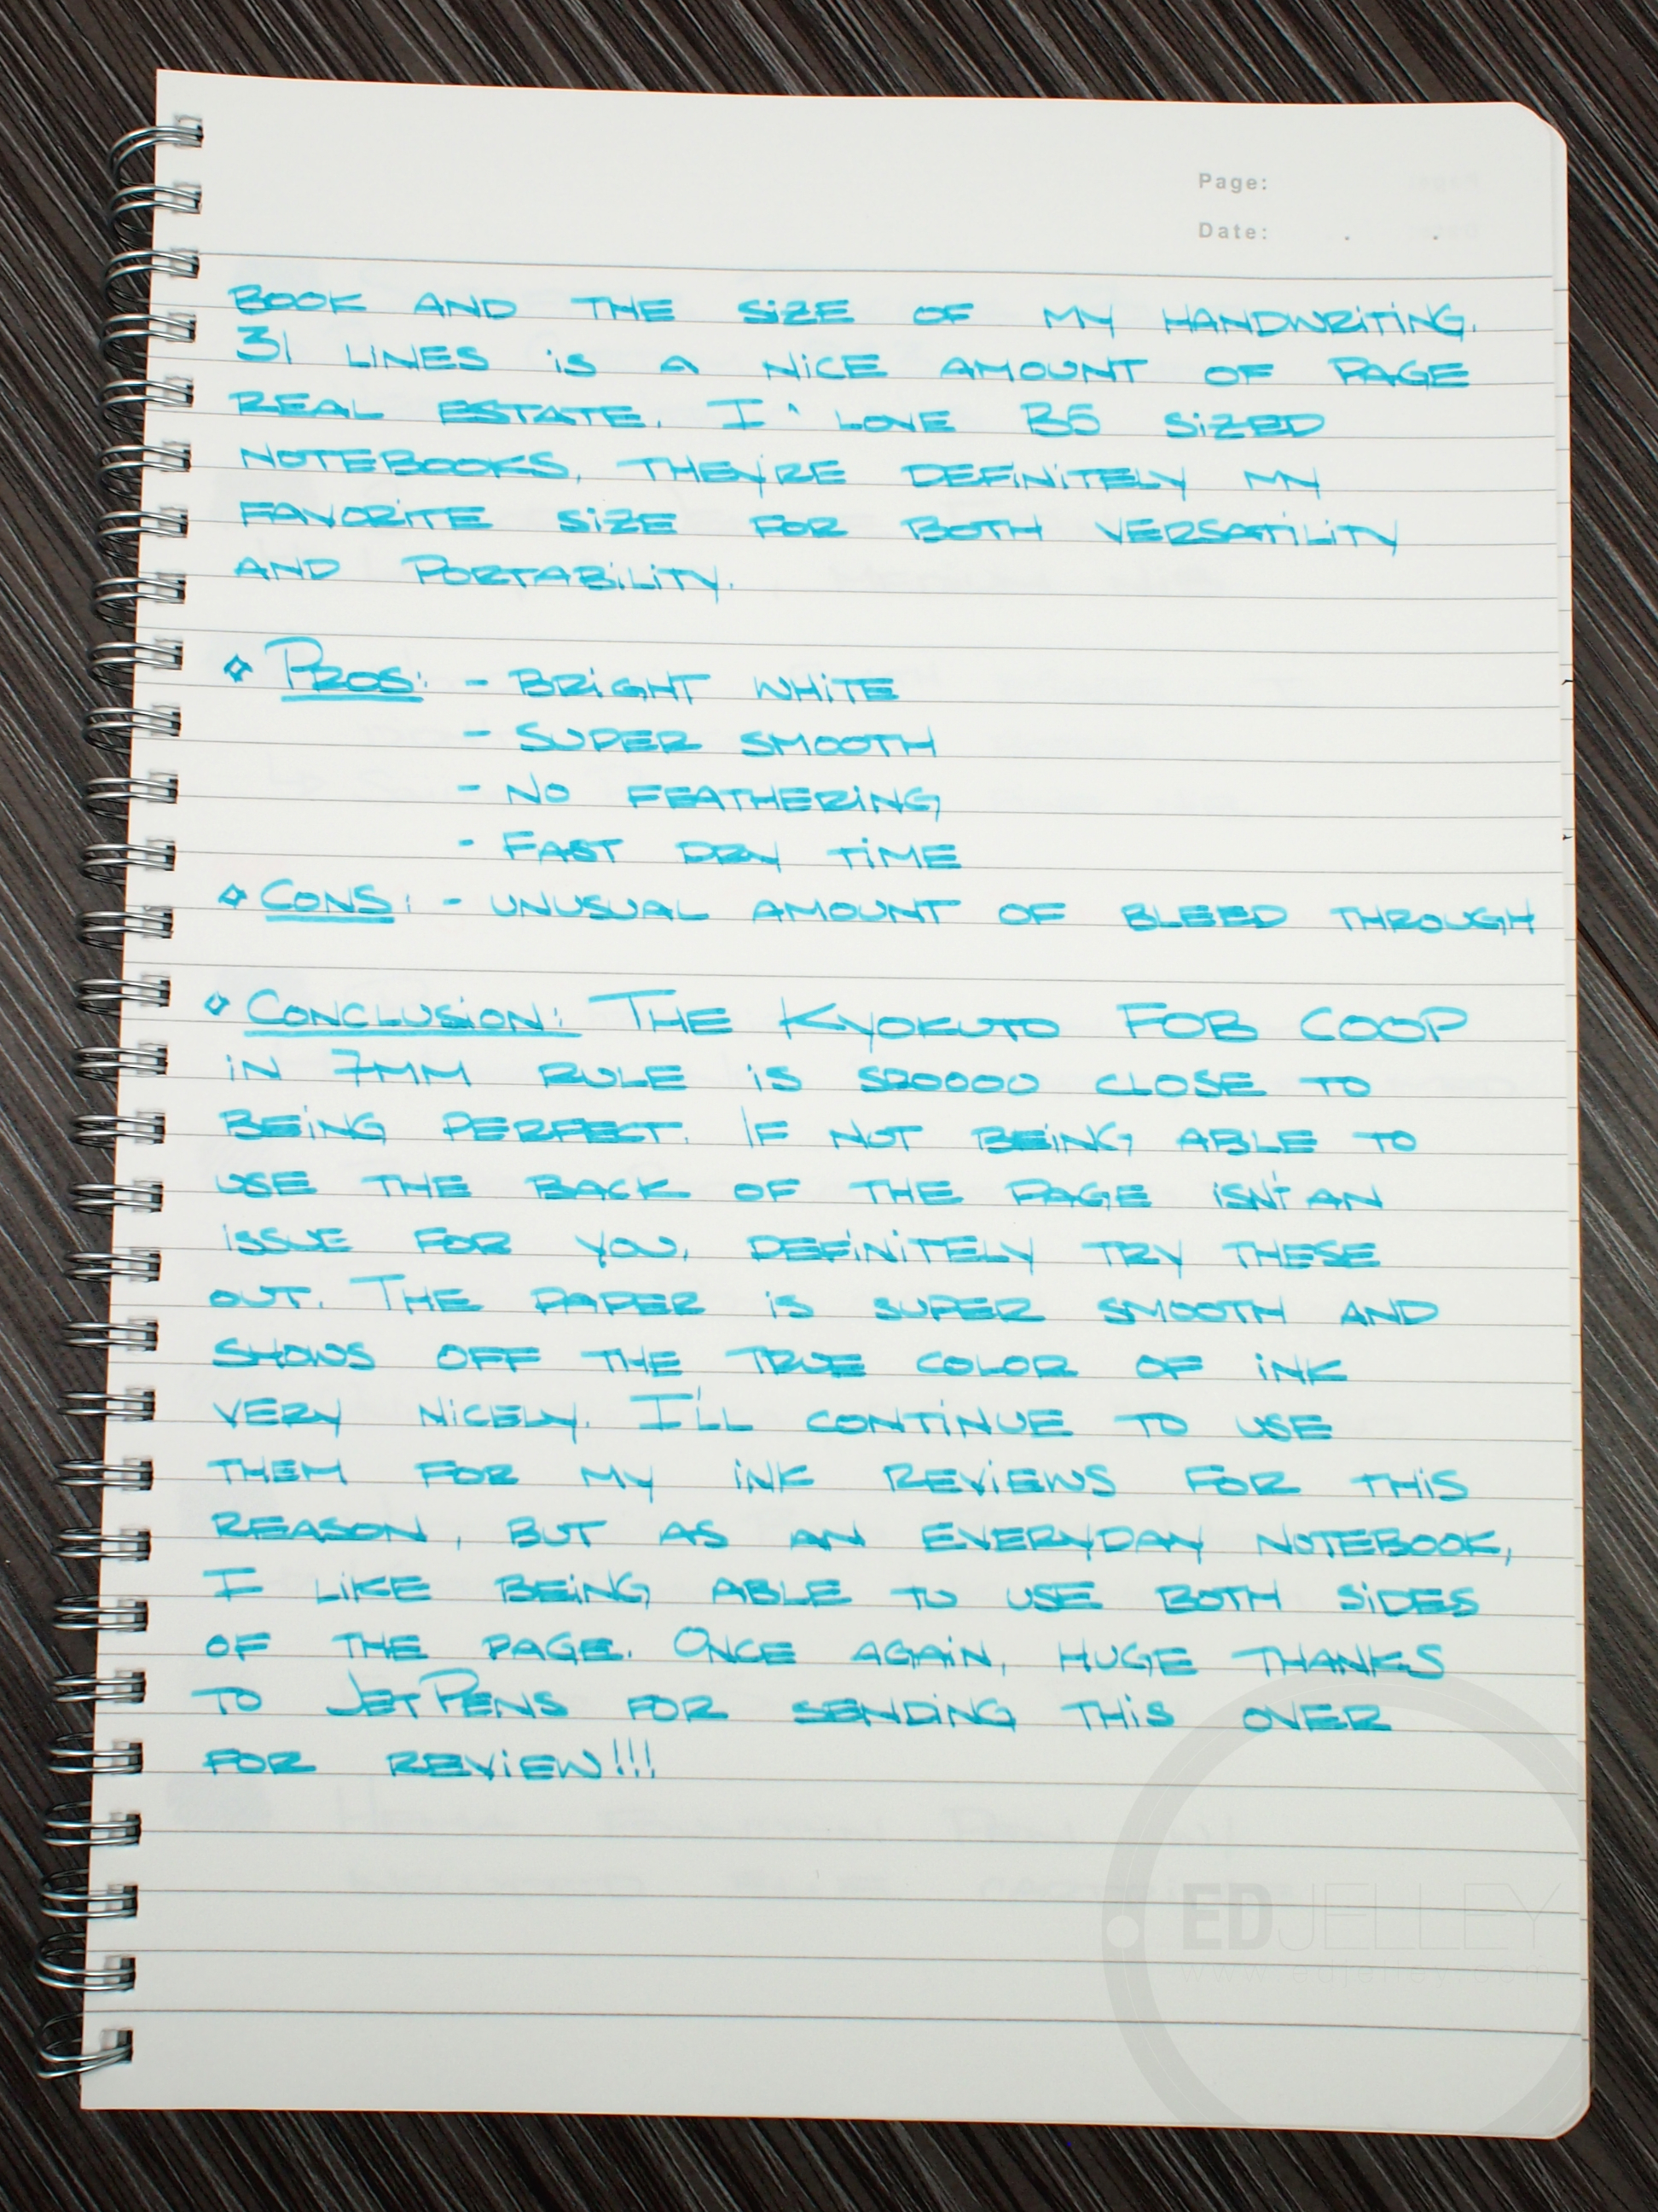 Page:
Date: . .
BOOK AND THE SiZE OF MY HANDWRiTiNG.
31 LINES iS A NiCE AMOUNT OF PAGE
REAL ESTATE. I LOVE B5 SiZED
NOTEBOOKS, THEY'RE DEFiNiTELY MY
FAVORiTE SiZE FOR BOTH VERSATiLiTY
AND PORTABiLiTY.
◇ PROS: - BRiGHT WHiTE
- SUPER SMOOTH
- NO FEATHERiNG
- FAST DRY TiME
◇ CONS: - UNUSUAL AMOUNT OF BLEED THROUGH
◇ CONCLUSiON: THE KYOKUTO FOB COOP
iN 7MM RULE iS SOOOOO CLOSE TO
BEiNG PERFECT. IF NOT BEiNG ABLE TO
USE THE BACK OF THE PAGE iSN'T AN
ISSUE FOR YOU, DEFiNiTELY TRY THESE
OUT. THE PAPER iS SUPER SMOOTH AND
SHOWS OFF THE TRUE COLOR OF iNK
VERY NiCELY. I'LL CONTiNUE TO USE
THEM FOR MY iNK REViEWS FOR THiS
REASON, BUT AS AN EVERYDAY NOTEBOOK,
I LiKE BEiNG ABLE TO USE BOTH SiDES
OF THE PAGE. ONCE AGAiN, HUGE THANKS
TO JETPENS FOR SENDiNG THiS OVER
FOR REViEW!!!
EDJELLEY
www.edjelley.com